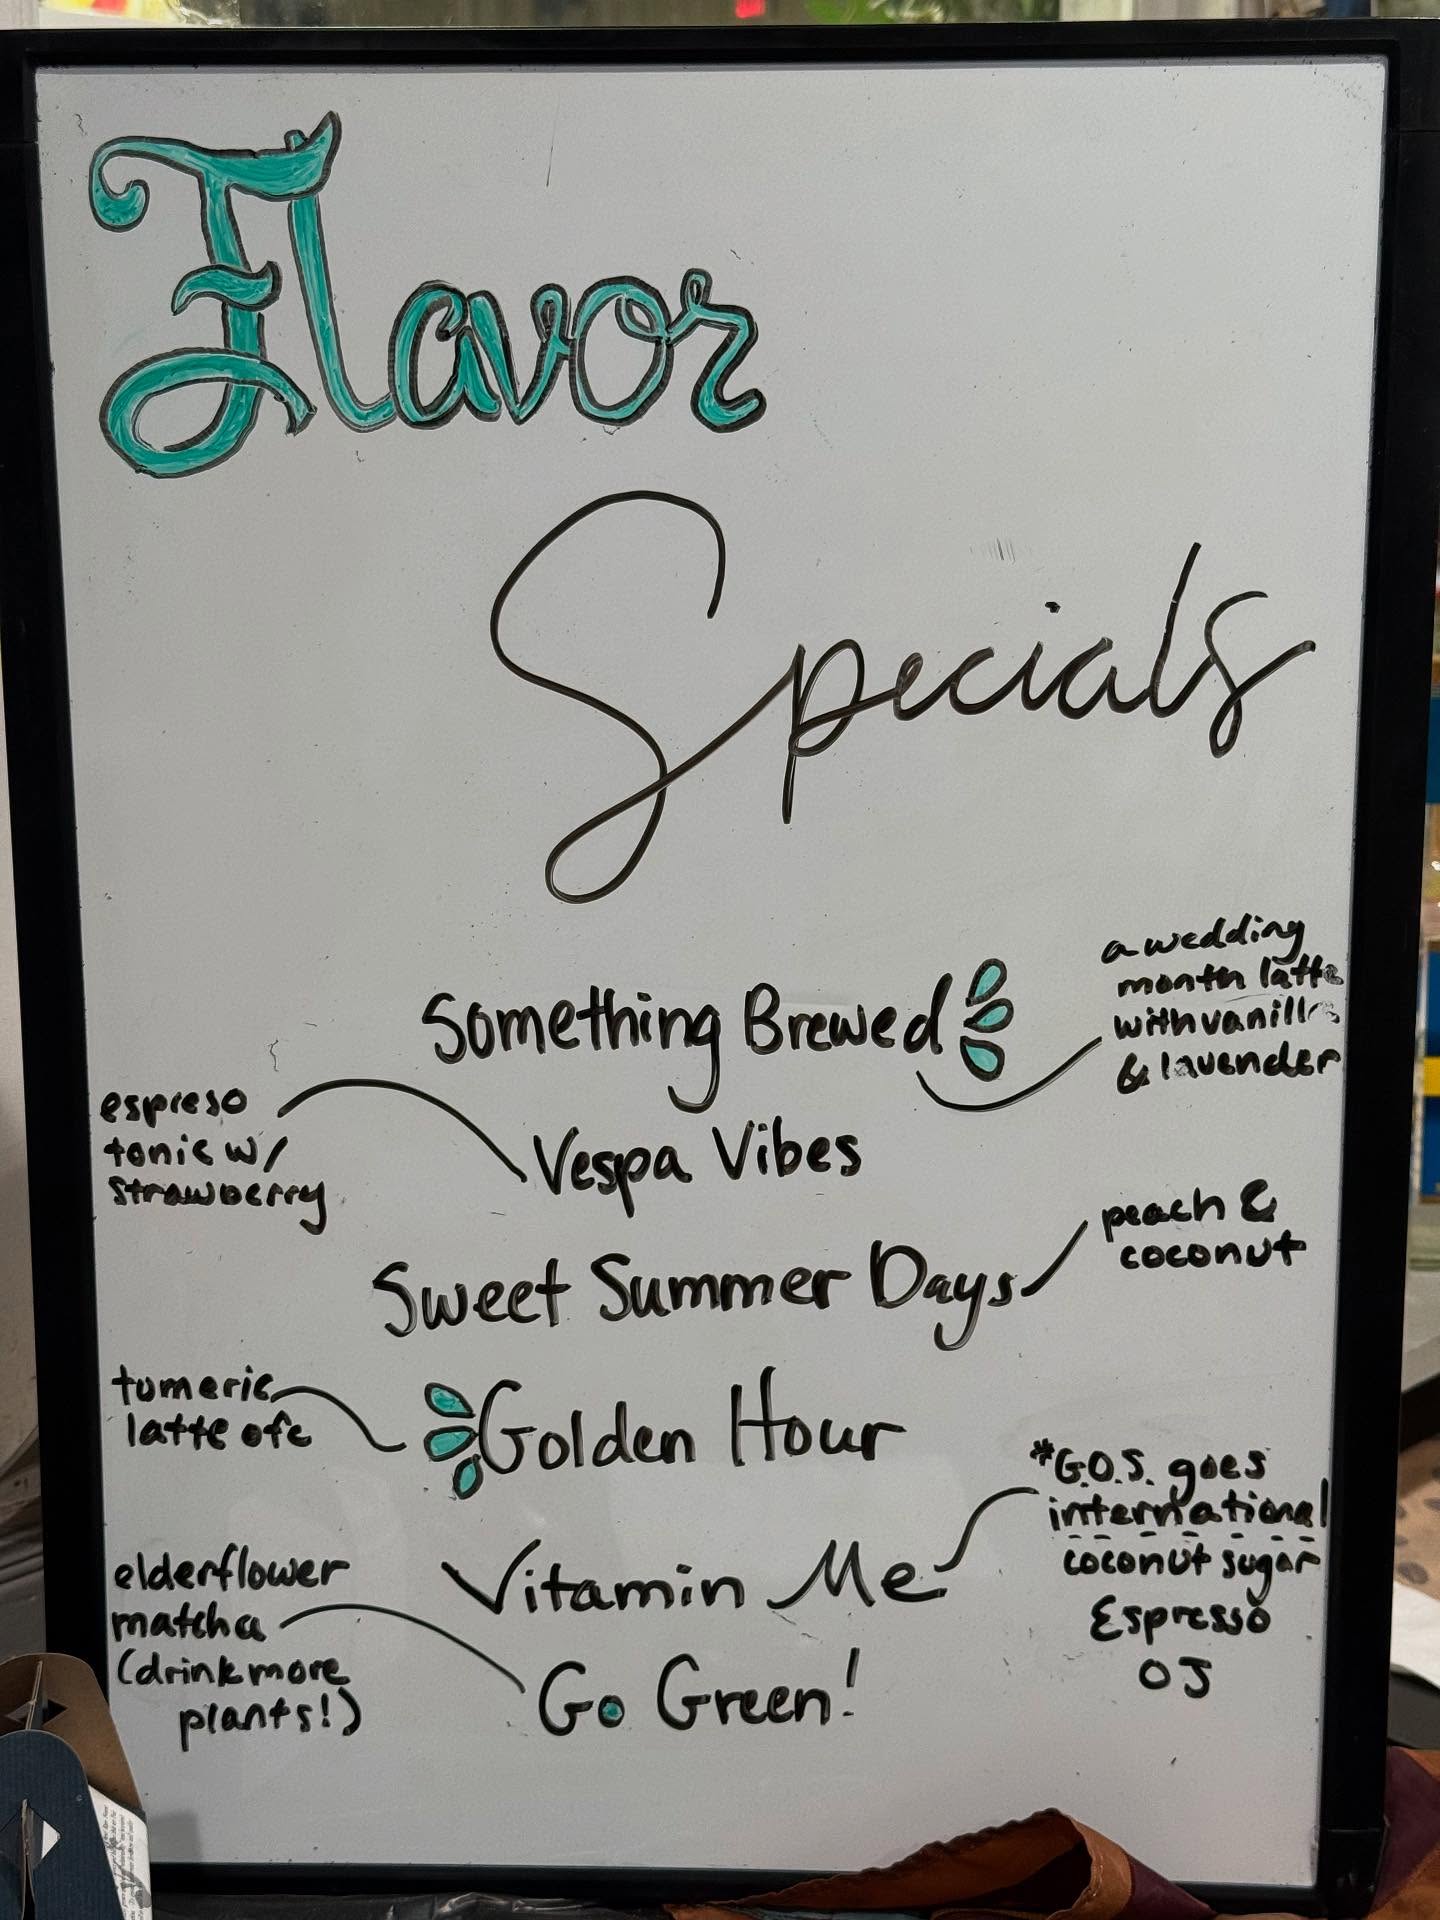 Flavor
Specials
Something Brewed
a wedding
month latte
with vanilla
& lavender
espreso
tonic w/
strawberry
Vespa Vibes
Sweet Summer Days
peach &
coconut
tumeric
latte ofc
Golden Hour
Vitamin Me
*G.O.S. goes
international
coconut sugar
Espresso
OJ
elderflower
matcha
(drink more
plants!)
Go Green!